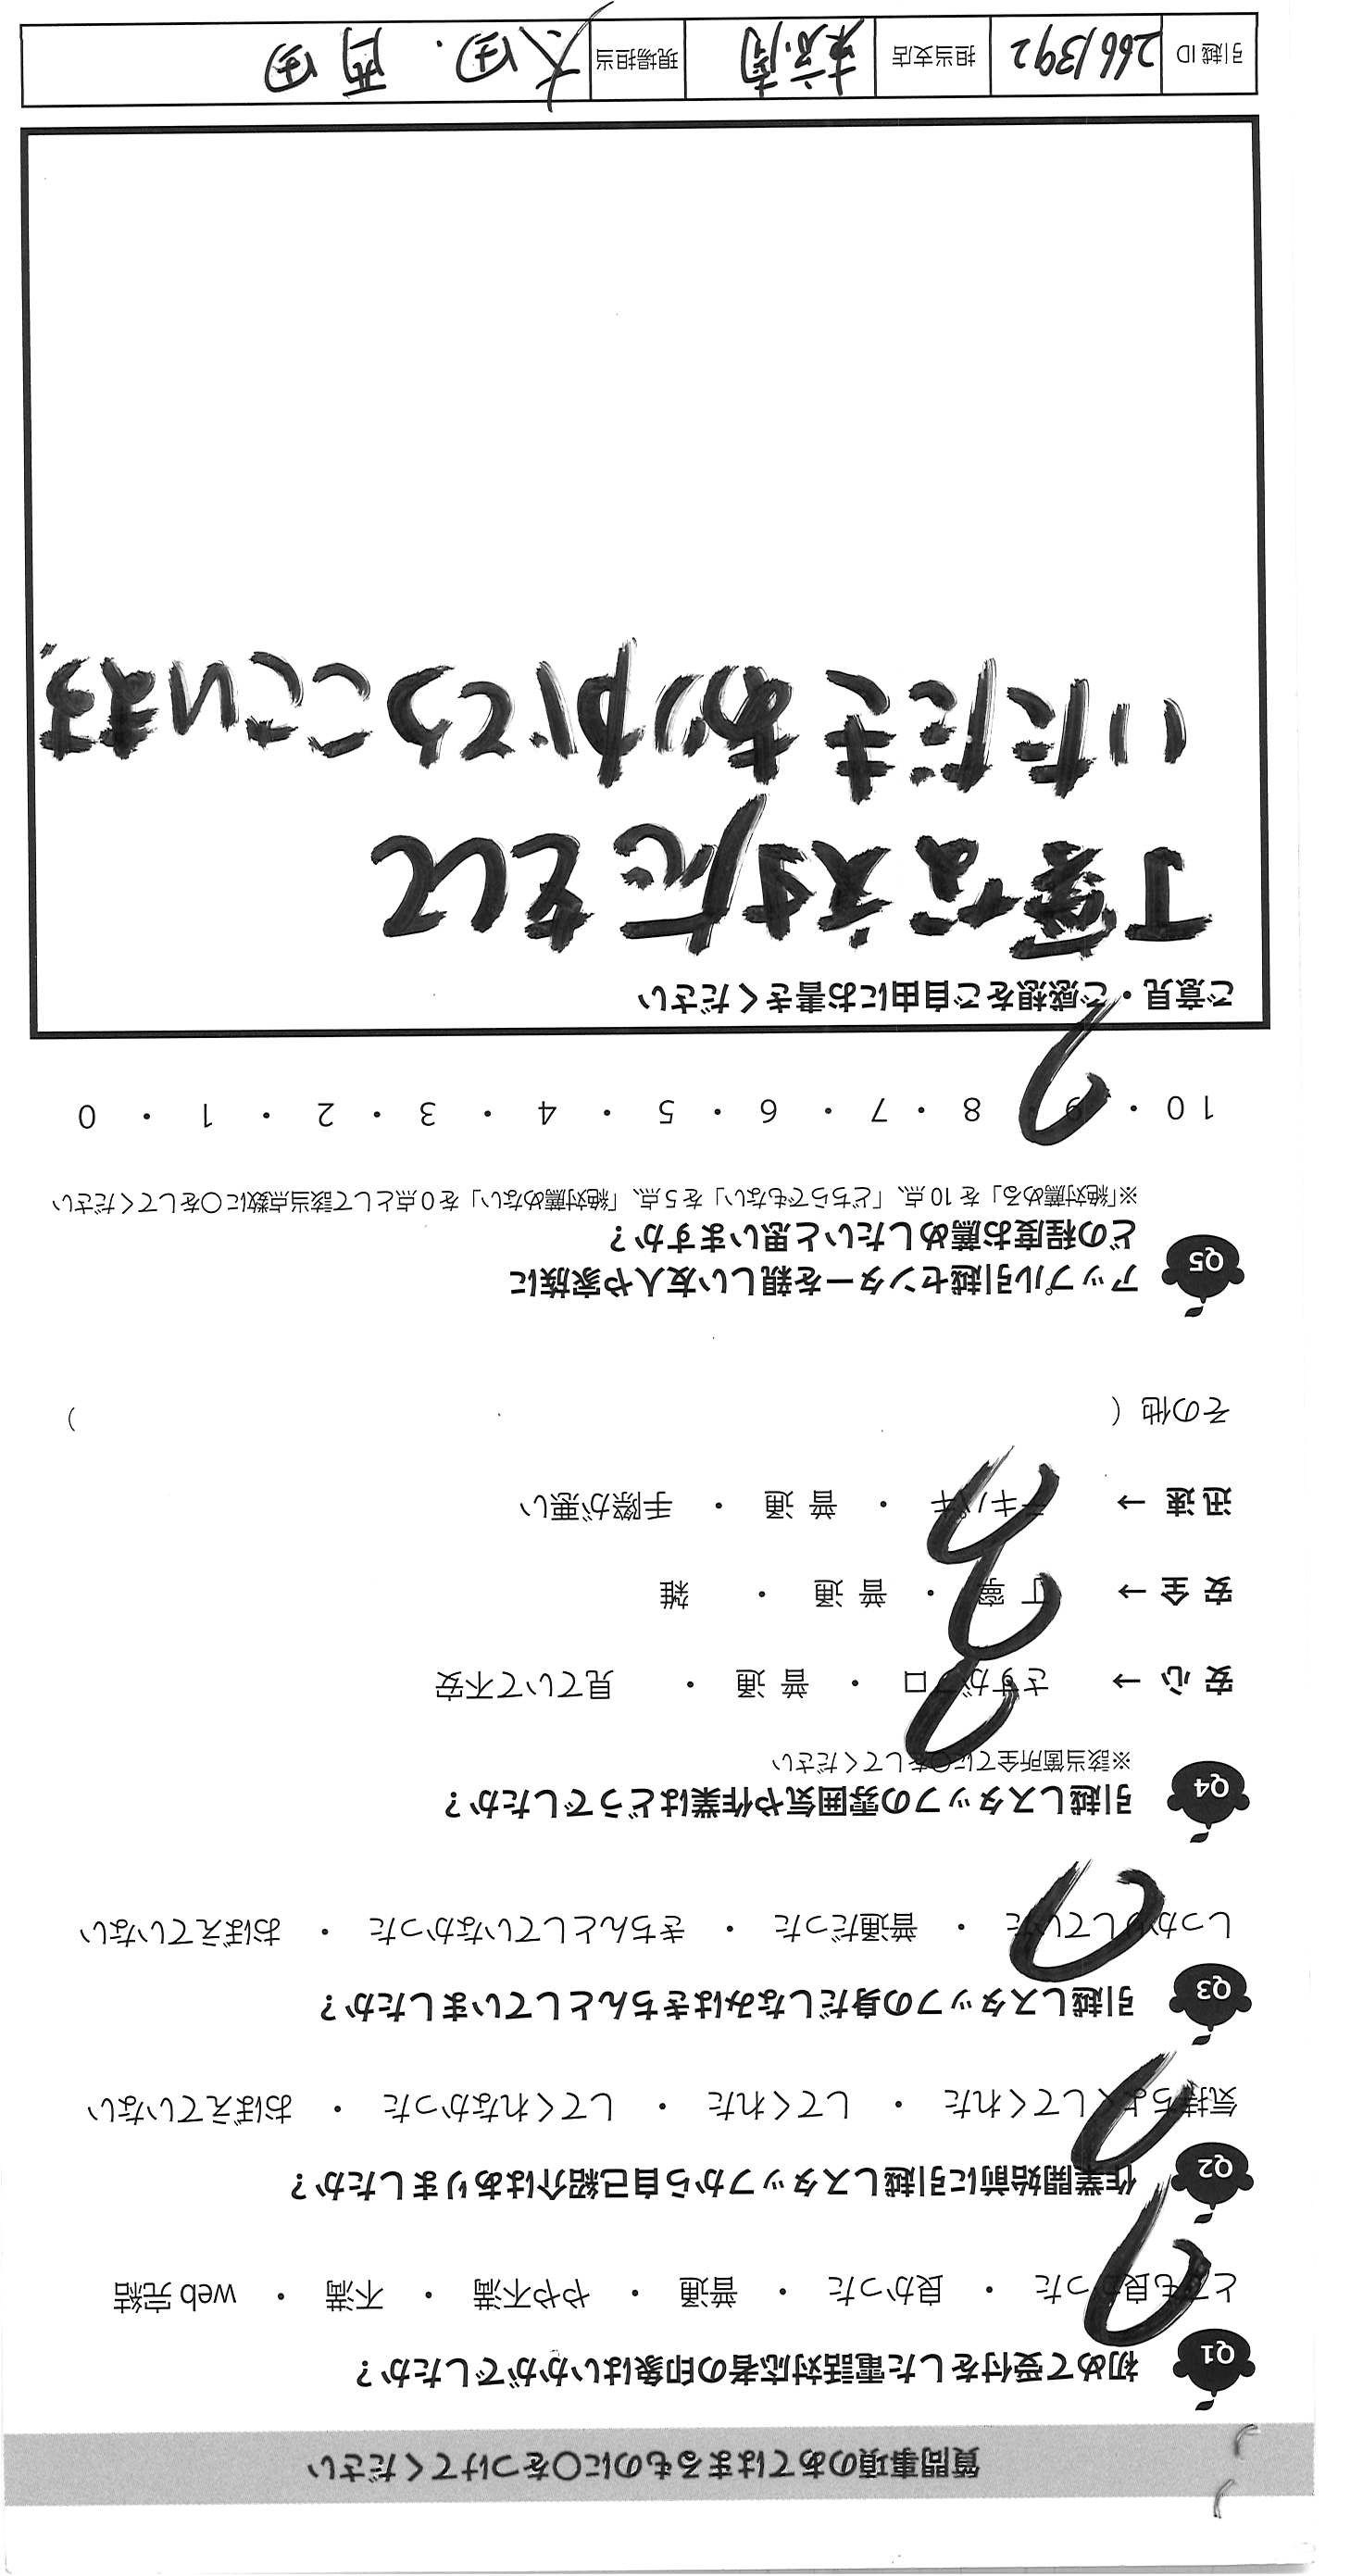 質問事項のあてはまるものに○をつけてください
Q1 初めて受付をした電話対応者の印象はいかがでしたか？
とても良かった ・ 良かった ・ 普通 ・ やや不満 ・ 不満 ・ web 完結
Q2 作業開始前に引越しスタッフから自己紹介はありましたか？
気持ちよくしてくれた ・ してくれた ・ してくれなかった ・ おぼえていない
Q3 引越しスタッフの身だしなみはきちんとしていましたか？
しっかりしていた ・ 普通だった ・ きちんとしていなかった ・ おぼえていない
Q4 引越しスタッフの雰囲気や作業はどうでしたか？
※該当箇所全てに○をしてください
安 心 → さすがプロ ・ 普 通 ・ 見ていて不安
安 全 → 丁 寧 ・ 普 通 ・ 雑
迅 速 → テキパキ ・ 普 通 ・ 手際が悪い
その他（ ）
Q5 アップル引越センターを親しい友人や家族に
どの程度お薦めしたいと思いますか？
※「絶対薦める」を 10 点、「どちらでもない」を 5 点、「絶対薦めない」を 0 点として該当点数に○をしてください
10 ・ 9 ・ 8 ・ 7 ・ 6 ・ 5 ・ 4 ・ 3 ・ 2 ・ 1 ・ 0
ご意見・ご感想をご自由にお書きください
丁寧な対応をして
いただきありがとうございます。
引越 ID 2661392 担当支店 東京南 現場担当 太田・西田